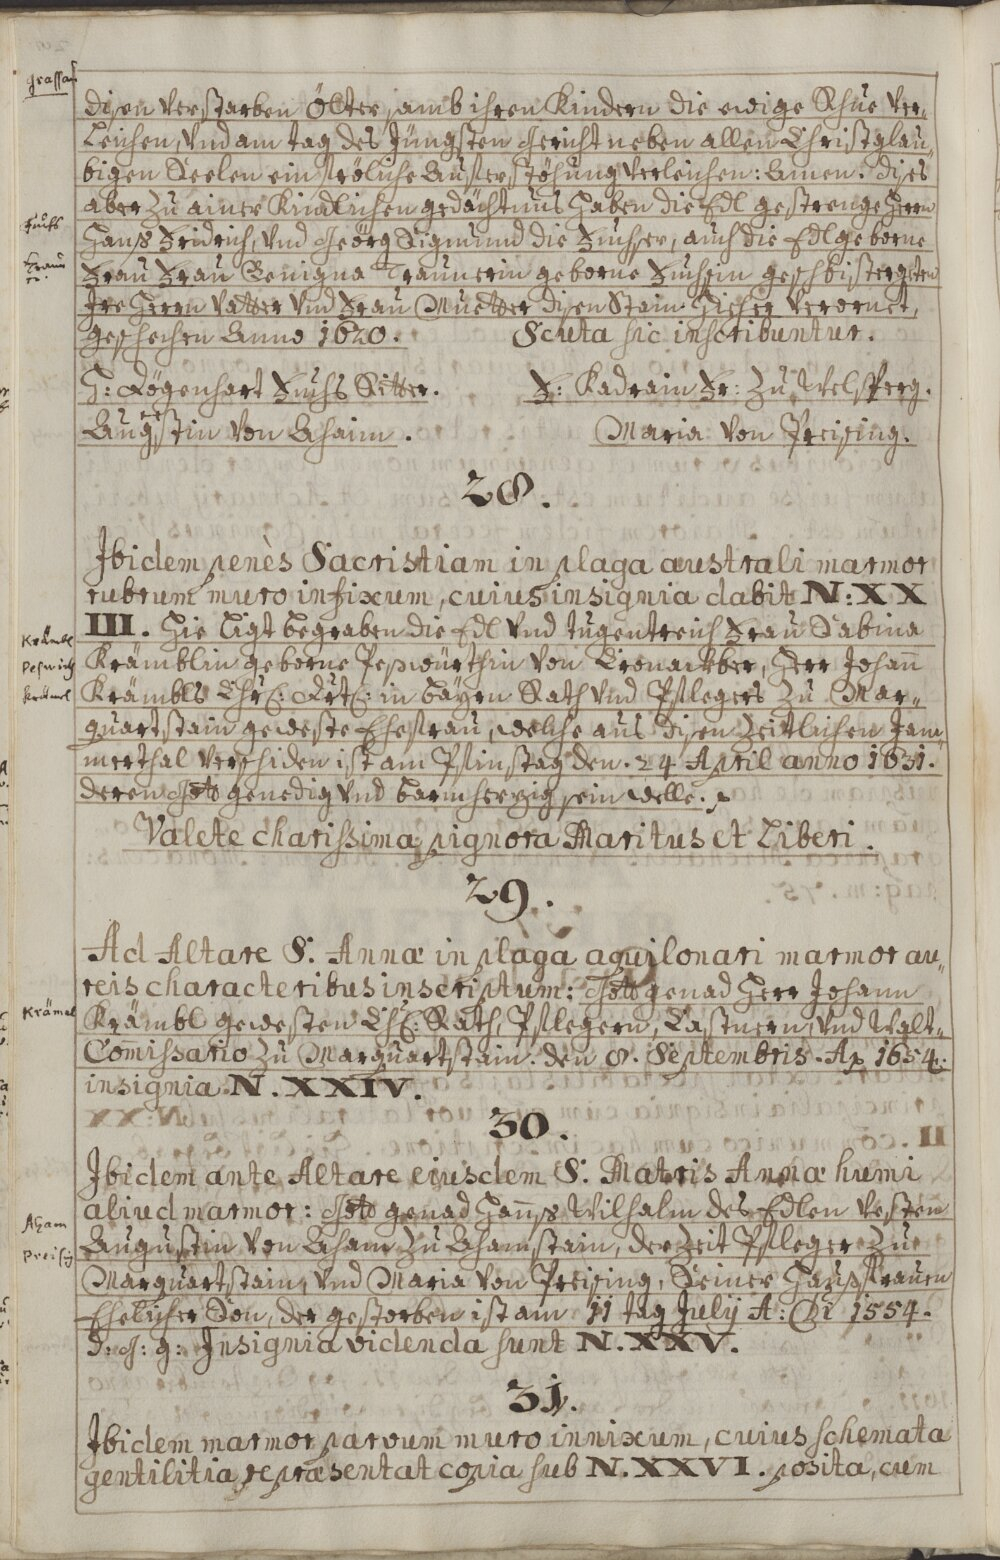 grassau
disen verstarben Ölter, samb ihren Kindern die ewige Rhue ver-
Leichen, Vnd am tag des Jüngsten Gericht neben allen Christglau-
bigen Seelen ein fröliche Aufferstöhung verleichen: Amen. dises
aber zu ainer Kindlichen gedächtnus haben die Edl gestrenge Herrn
fuchs
Hanß Fridrich, Vnd Geörg Sigmund die Fuchsen, auch die Edlgeborne
Traun
Frau Frau Benigna Traunerin geborne Fuchsin geschbistergeten
Ire Herrn Vatter Vnd Frau Muetter disen Stain hieher verornet,
geschechen Anno 1620. Scuta sic inscribuntur.
H: Dögenhart Fuchs Ritter. F: Kadrain Fr: zu Welsperg.
Augustin Von Ahaim. Maria Von Preising.
28.
Ibidem penès Sacristiam in plaga australi marmor
rubrum muro infixum, cuius insignia dabit N: XX
III. Hie Ligt begraben die Edl Vnd tugentreich Frau Sabina
Krämbl
Krämblin geborne Peswürthin Von Lronackher, Herr Johann
Peswirth
Krämbls Chrf: Drt: in Bayrn Rath Vnd Pflegers zu Mar-
Kräml
quartstain geweste Ehefrau, welche aus disen zeitlichen Jam-
merthal verschiden ist am Pfinstag den. 24 April anno 1631.
deren Gott genedig Vnd barmherzig sein welle.
Valete charissima pignora Maritus et Liberi.
29.
Ad Altare S. Annæ in plaga aquilonari marmor au-
reis characteribus inscriptum: Gott genad Herr Johann
Krämel
Krämbl gewesten Chf: Rath, Pflegern, Castnern, Vnd Walt-
Com̃issario zu Marquartstain. den 8. Septembris. Ao 1654.
insignia N. XXIV.
30.
Ibidem ante Altare eiusdem S. Matris Annæ humi
aliud marmor: Gott genad Hanns Wilhalm des Edlen Vesten
Aham
Augustin Von Aham zu Ahamstain, der zeit Pfleger zu
Preisg
Marquartstain, Vnd Maria Von Preising, Seiner Haußfrauen
Ehelicher Son, der gestorben ist am 11 tag July A: Di 1554.
d: G: g: Insignia videnda sunt N. XXV.
31.
Ibidem marmor parvum muro innixum, cuius schemata
gentilitia repræsentat copia sub N. XXVI. posita, cum